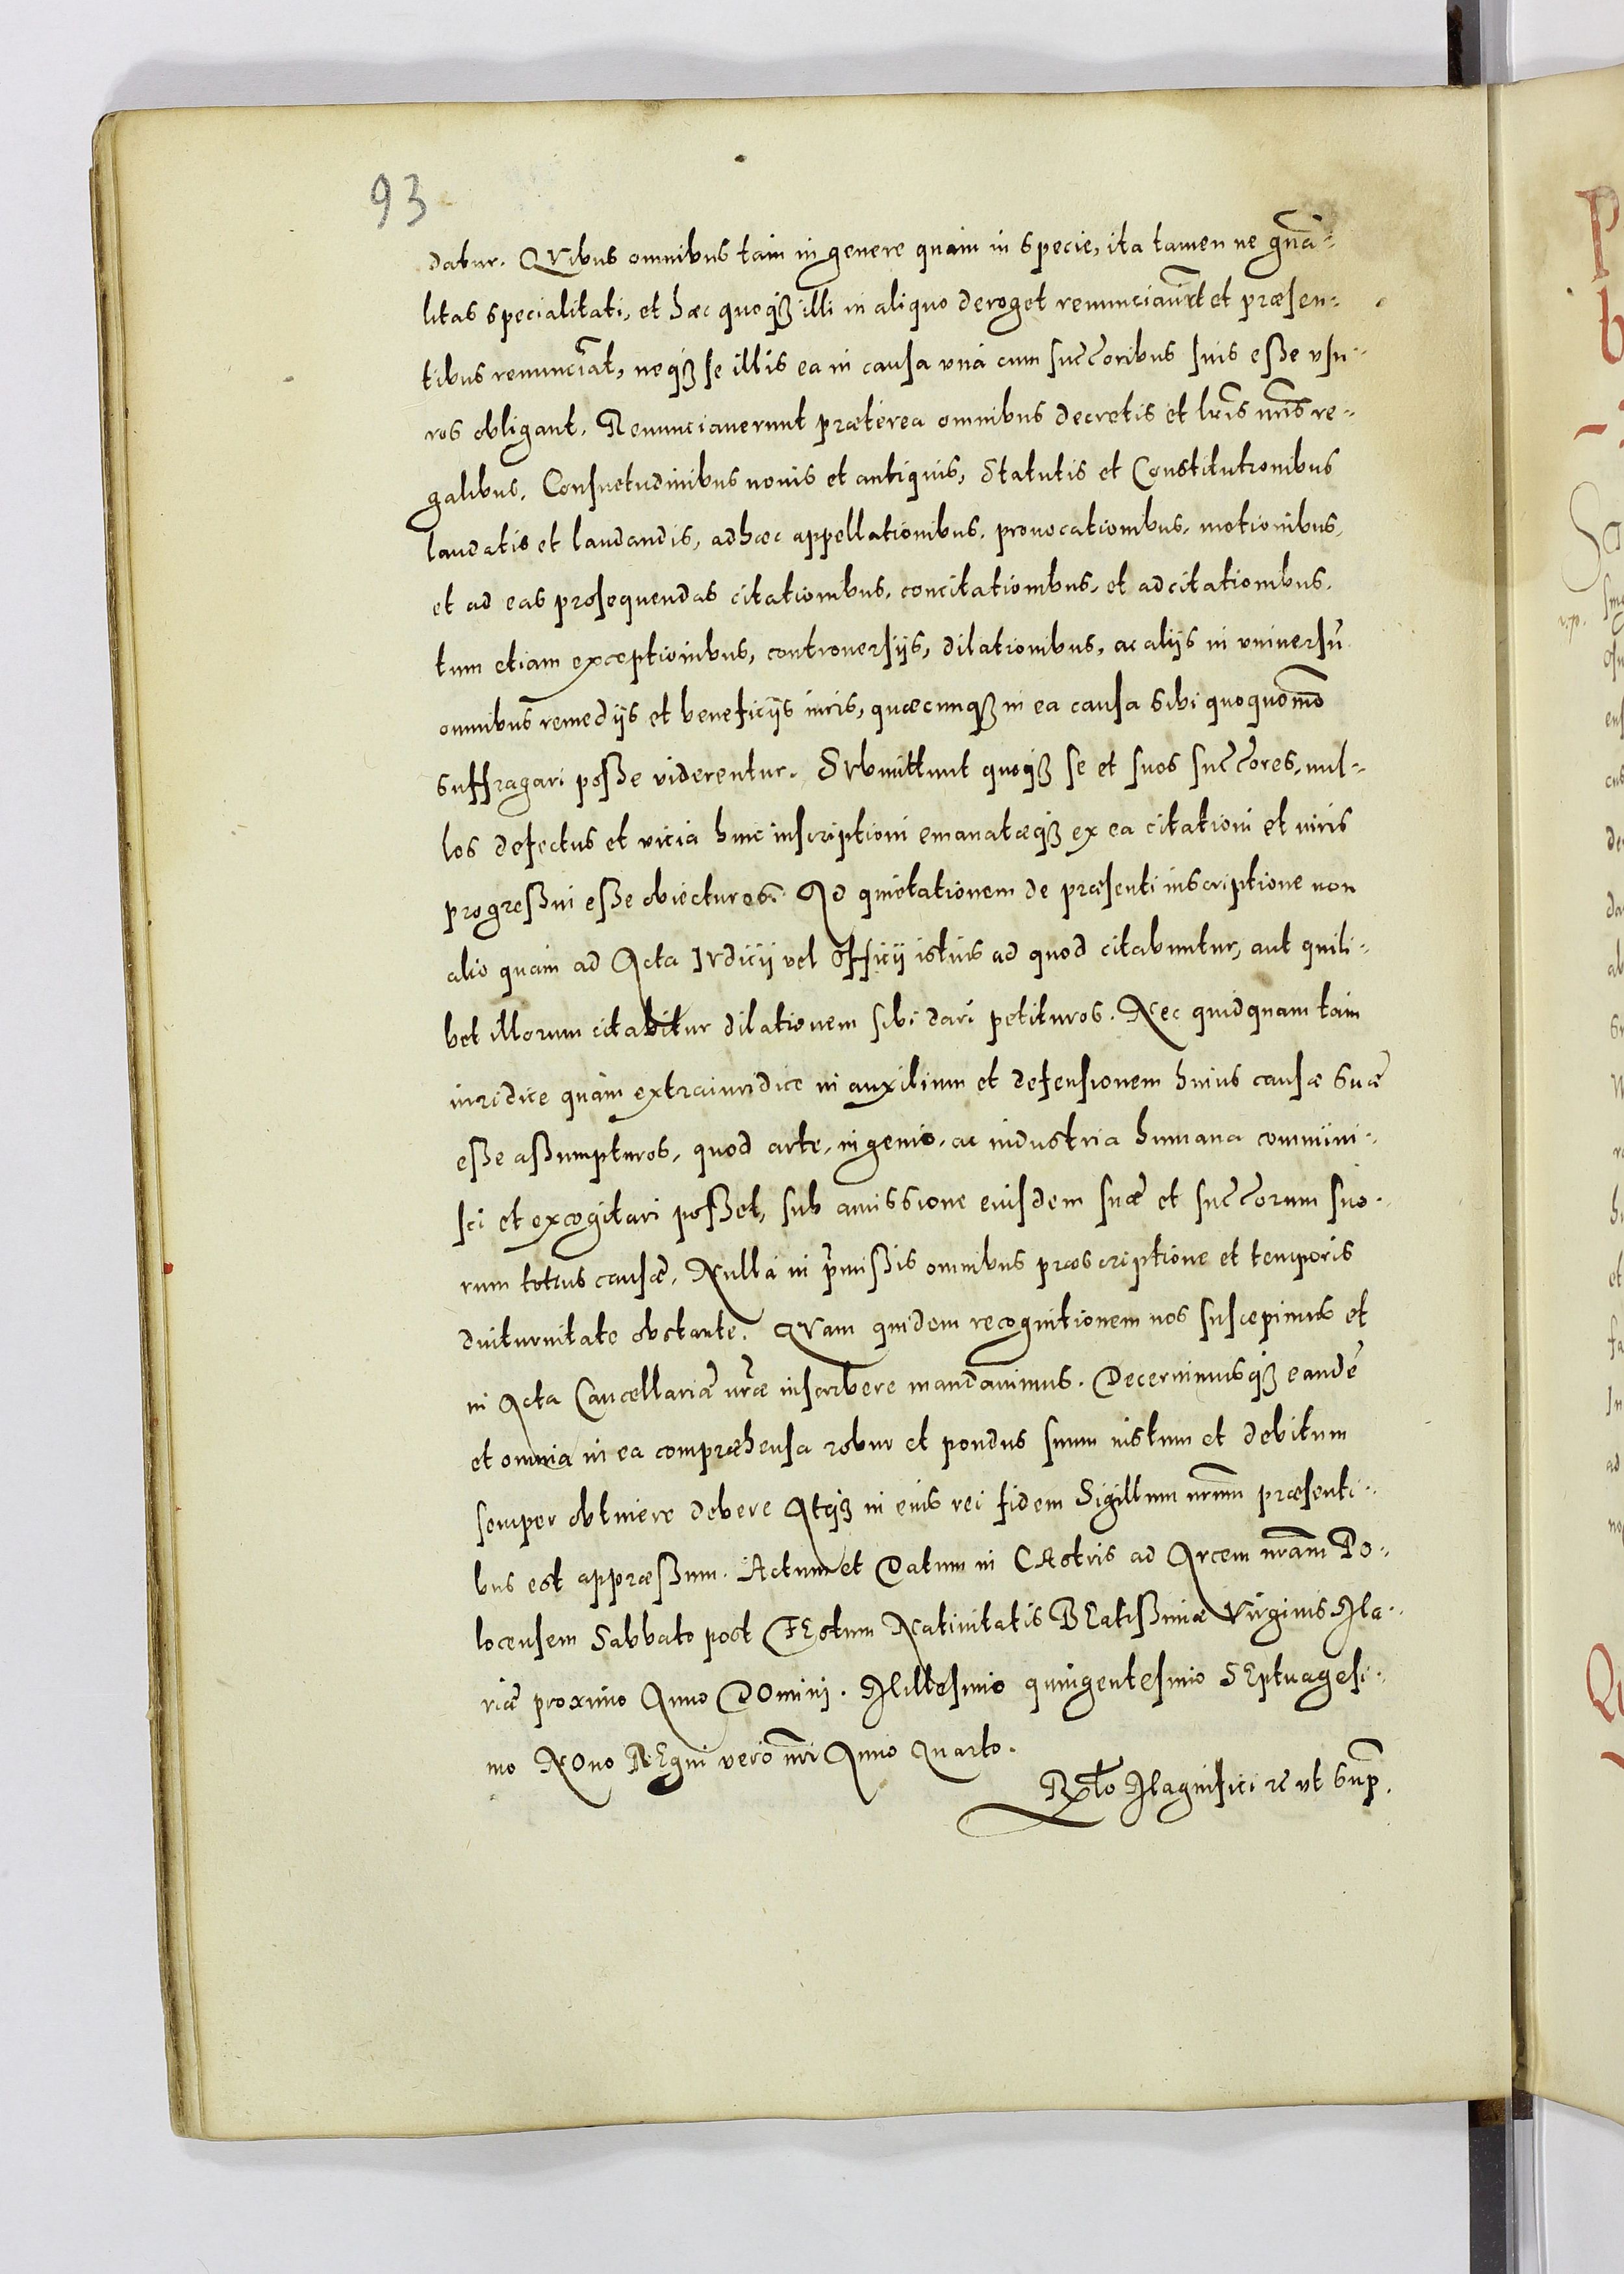 93
dabur. QVibus omnibus tam in genere quam in specie, ita tamen ne gn̄a-
litas specialitati, et hæc quoq₃ illi in aliquo deroget renunciaūrt et præsen-
tibus renunciāt, neq₃ se illis ea in causa unà cum succ̄oribus suis eße usu-
ros obligant. Renunciauerunt præterea omnibus decretis et lr̄is nr̄is re-
galibus. Consuetudinibus nouis et antiquis, Statutis et Constitutionibus
laudatis et laudandis, adhæc appellationibus, prouocationibus, motionibus,
et ad eas prosequendas citationibus, concitationibus, et adcitationibus.
tum etiam exceptionibus, controuersijs, dilationibus, ac alijs in vniuersū
omnibus remedijs et beneficijs iuris, quæcunq₃ in ea causa sibi quoquom̄o
suffragari poße viderentur. SVbmittunt quoq₃ se et suos succ̄ores, nul-
los defectus et vicia huic inscriptioni emanatæq₃ ex ea citationi et iuris
progreßui eße obiecturos. Ad quietationem de præsenti inscriptione non
alio quam ad Acta IVdicij vel Officij istius ad quod citabuntur, aut quili-
bet illorum citabitur dilationem sibi dari petituros. Nec quidquam tam
iuridice quàm extraiuridice in auxilium et defensionem huius causæ suæ
eße aßumpturos, quod arte, ingenio, ac industria humana commini-
sci et excogitari poßet, sub amissione eiusdem suæ et succ̄orum suo-
rum totius causæ, Nulla in p̄mißis omnibus præscriptione et temporis
diuturnitate obstante. QVam quidem recognitionem nos suscepimus et
in Acta Cancellariæ nr̄æ inscribere mandauimus. Decernimusq₃ eandē
et omnia in ea compræhensa robur et pondus suum iustum et debitum
semper obtinere debere Atq₃ in eius rei fidem Sigillum nr̄um præsenti-
bus est appræßum. Actum et Datum in CAstris ad Arcem nr̄am Po-
locensem Sabbato post FEstum Natiuitatis BEatißimæ Virginis Ma-
riæ proximo Anno DOmini. Millesimo quingentesimo SEptuagesi-
mo NOno REgni vero nr̄i Anno Quarto.
Rl̄to Magnifici ꝛc̄ ut Sup̄.